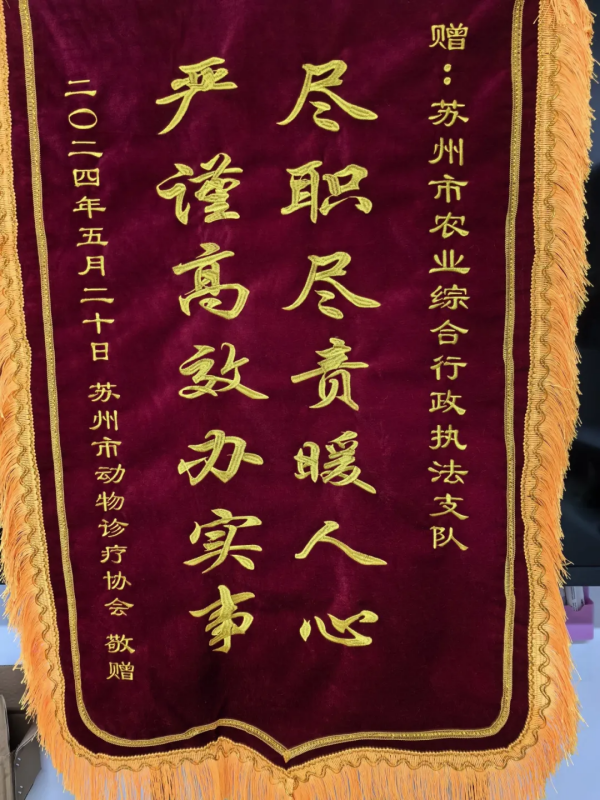 赠：苏州市农业综合行政执法支队
尽职尽责暖人心
严谨高效办实事
二〇二四年五月二十日 苏州市动物诊疗协会 敬赠